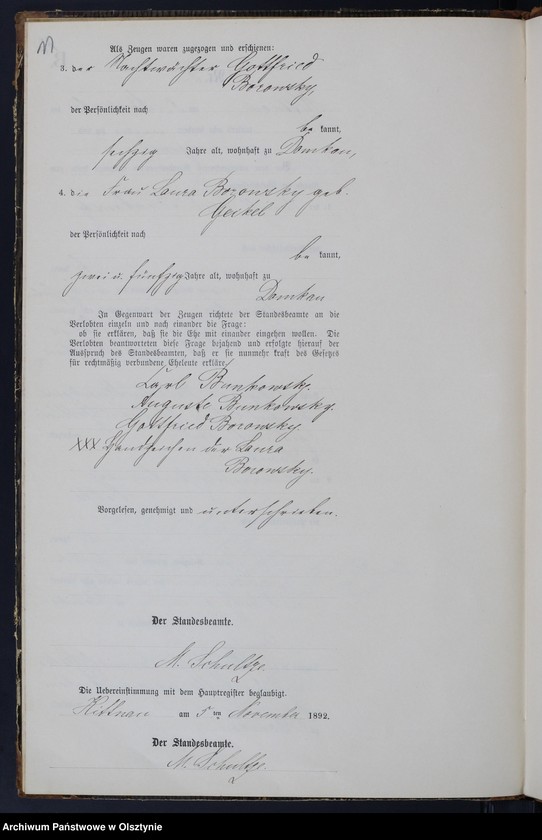 Als Zeugen waren zugezogen und erschienen:
3. der Nachtwächter Gottfried
Borowsky,
der Persönlichkeit nach
be kannt,
sechzig Jahre alt, wohnhaft zu Domkau,
4. die Frau Laura Borowsky geb.
Geikel
der Persönlichkeit nach
be kannt,
zwei u. fünfzig Jahre alt, wohnhaft zu
Domkau
In Gegenwart der Zeugen richtete der Standesbeamte an die
Verlobten einzeln und nach einander die Frage:
ob sie erklären, daß sie die Ehe mit einander eingehen wollen. Die
Verlobten beantworteten diese Frage bejahend und erfolgte hierauf der
Ausspruch des Standesbeamten, daß er sie nunmehr kraft des Gesetzes
für rechtmäßig verbundene Eheleute erkläre.
Carl Bunkowsky.
Auguste Bunkowsky.
Gottfried Borowsky.
XXX Handzeichen der Laura
Borowsky.
Vorgelesen, genehmigt und unterschrieben.
Der Standesbeamte.
M. Schultze.
Die Uebereinstimmung mit dem Hauptregister beglaubigt.
Kittnau am 5ten November 1892.
Der Standesbeamte.
M. Schultze.
Archiwum Państwowe w Olsztynie